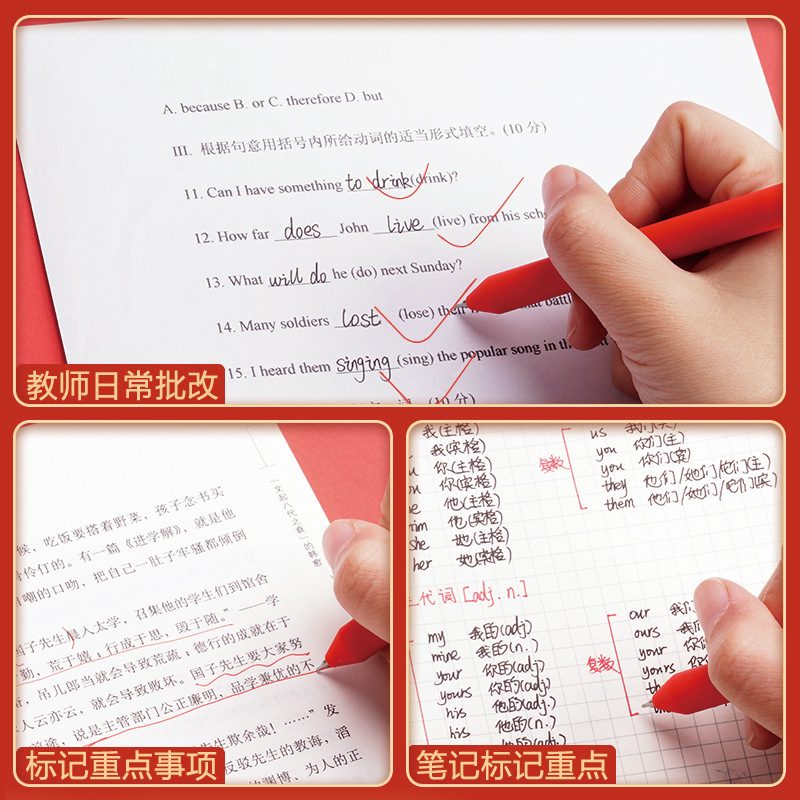 A. because B. or C. therefore D. but
III. 根据句意用括号内所给动词的适当形式填空。(10 分)
11. Can I have something to drink(drink)?
12. How far does John live (live) from his
13. What will do he (do) next Sunday?
14. Many soldiers lost (lose)
15. I heard them singing (sing) the popular song in
(10 分)
教师日常批改
「文起八代之衰」的韩愈
候，吃饭要搭着野菜，孩子念书买
伶仃的。有一篇《进学解》，就是他
自嘲的口吻，把自己一肚子牢骚都倾倒
国子先生晨入太学，召集他的学生们到馆舍
勤，荒于嬉；行成于思，毁于随。”——学
，吊儿郎当就会导致荒疏；德行的成就在于
人云亦云，就会导致败坏。国子先生要大家努
前途，说是主管部门公正廉明，品学兼优的不
先生欺余哉！……”发
反驳先生的教诲，滔
的渊博、为人的正
标记重点事项
我(主格)
我(宾格)
你(主格)
你(宾格)
他(主格)
him 他(宾格)
she 她(主格)
her 她(宾格)
复数
us
you 你们(主)
you 你们(宾)
they 他们/她们/它们(主)
them 他们/她们/它们(宾)
代词 [adj. n.]
my 我的(adj)
mine 我的(n.)
your 你的(adj)
yours 你的(adj.
his 他的(adj.
his 他的(n.)
她的(adj.)
复数
our 我们
ours 我们
your 你们
yours 你
笔记标记重点